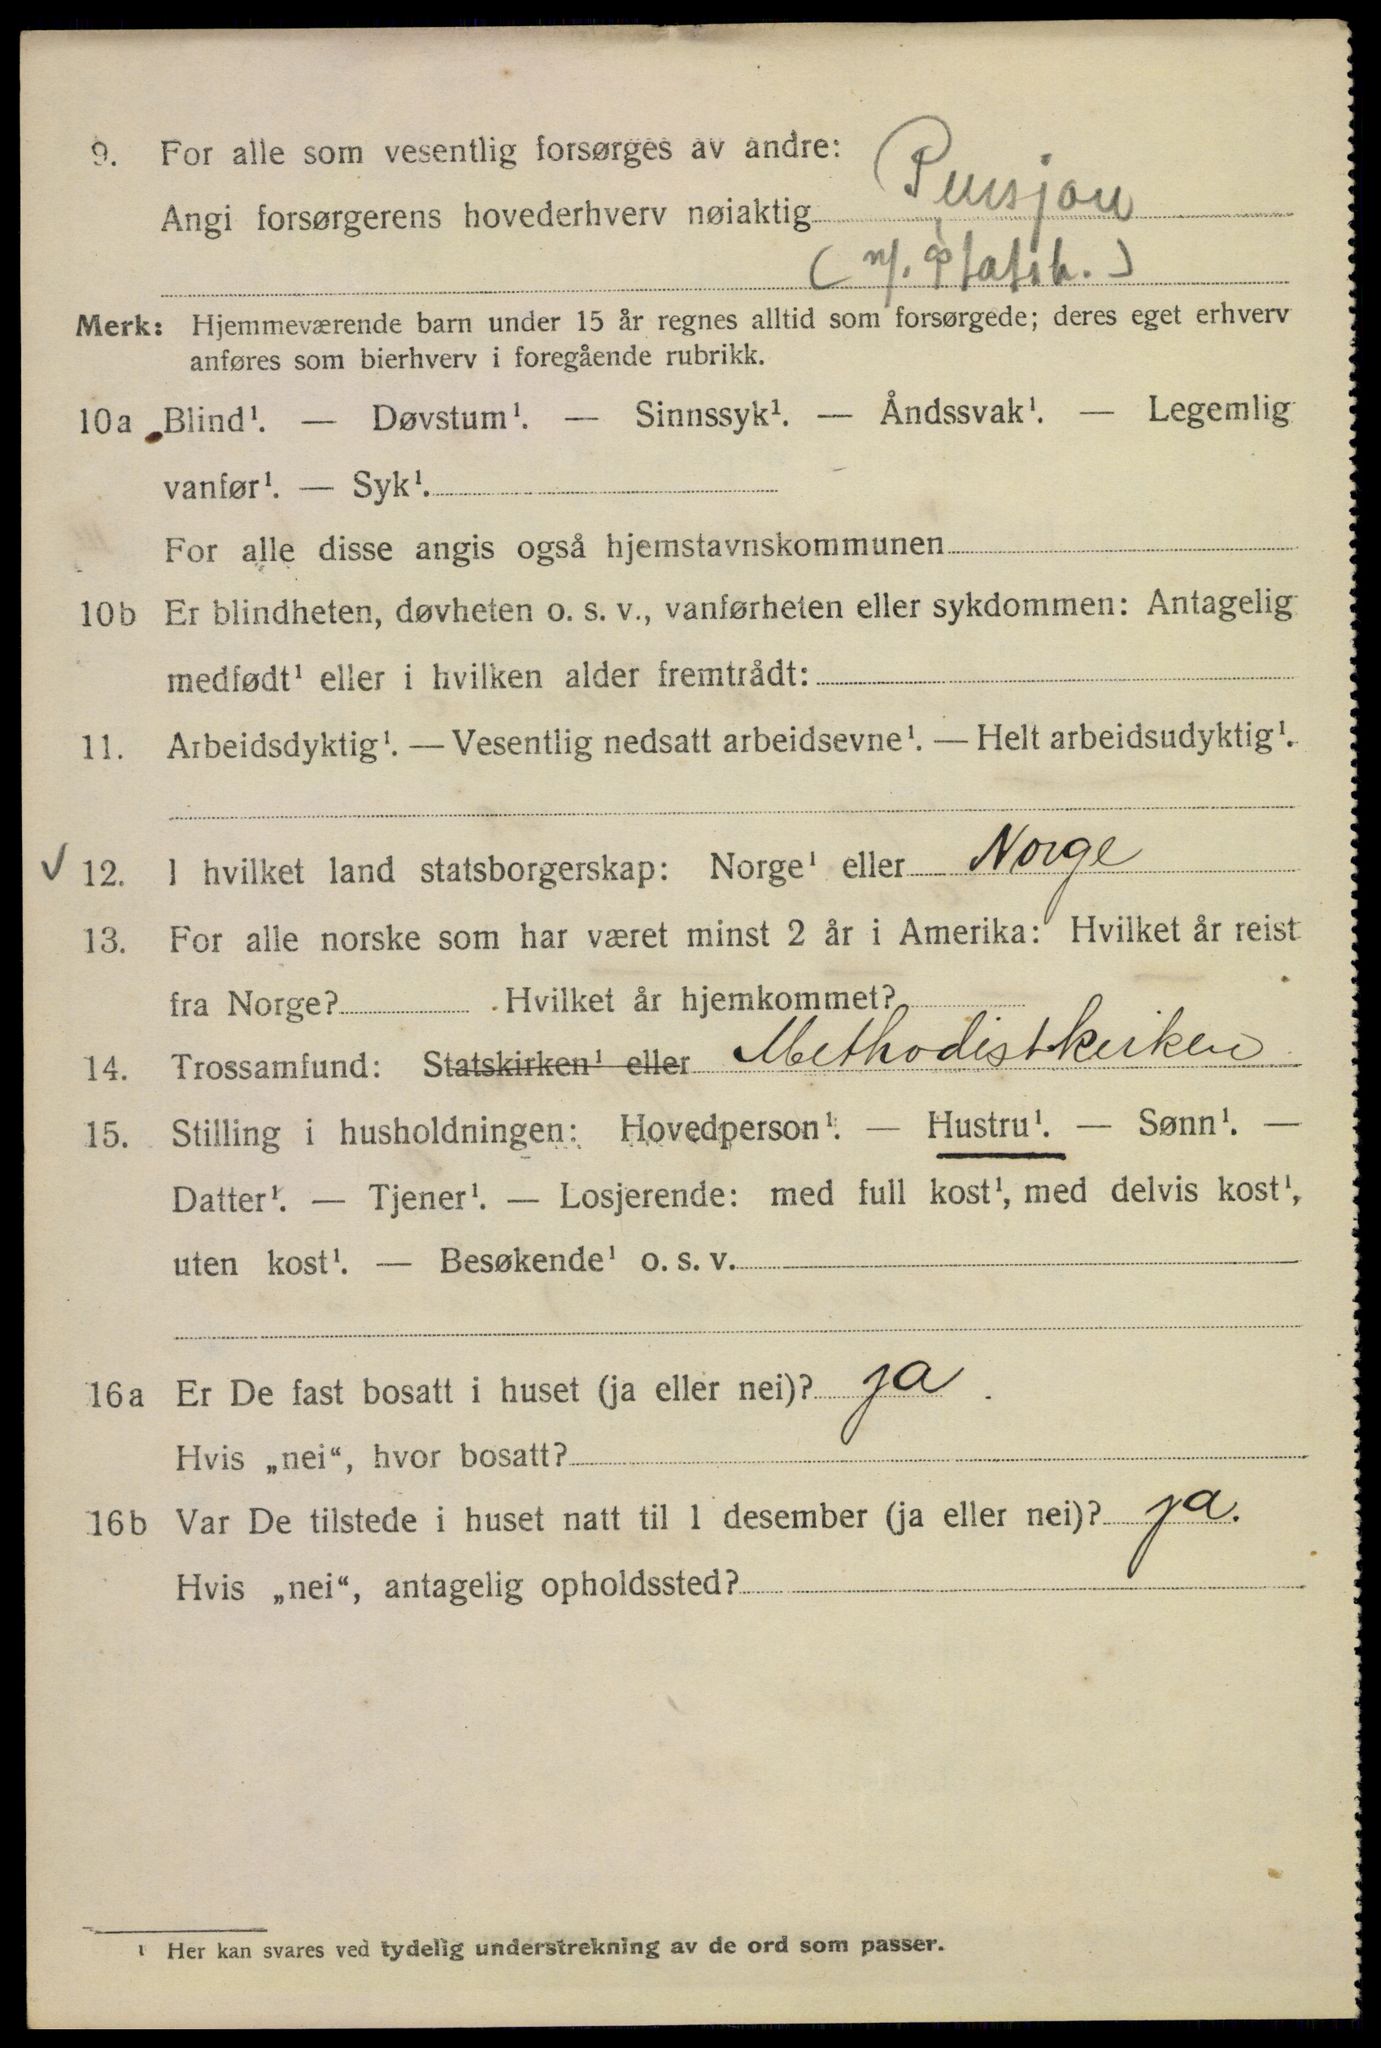 9. For alle som vesentlig forsørges av andre:
Angi forsørgerens hovederhverv nøiaktig Pensjon
( m/. Statsb. )
Merk: Hjemmeværende barn under 15 år regnes alltid som forsørgede; deres eget erhverv
anføres som bierhverv i foregående rubrikk.
10a Blind¹. — Døvstum¹. — Sinnssyk¹. — Åndssvak¹. — Legemlig
vanfør¹. — Syk¹.
For alle disse angis også hjemstavnskommunen
10b Er blindheten, døvheten o. s. v., vanførheten eller sykdommen: Antagelig
medfødt¹ eller i hvilken alder fremtrådt:
11. Arbeidsdyktig¹. — Vesentlig nedsatt arbeidsevne¹. — Helt arbeidsudyktig¹.
√ 12. I hvilket land statsborgerskap: Norge¹ eller Norge
13. For alle norske som har været minst 2 år i Amerika: Hvilket år reist
fra Norge? . Hvilket år hjemkommet?
14. Trossamfund: Statskirken¹ eller Methodistkirken
15. Stilling i husholdningen: Hovedperson¹. — Hustru¹. — Sønn¹. —
Datter¹. — Tjener¹. — Losjerende: med full kost¹, med delvis kost¹,
uten kost¹. — Besøkende¹ o. s. v.
16a Er De fast bosatt i huset (ja eller nei)? ja .
Hvis „nei“, hvor bosatt?
16b Var De tilstede i huset natt til 1 desember (ja eller nei)? ja.
Hvis „nei“, antagelig opholdssted?
¹ Her kan svares ved tydelig understrekning av de ord som passer.